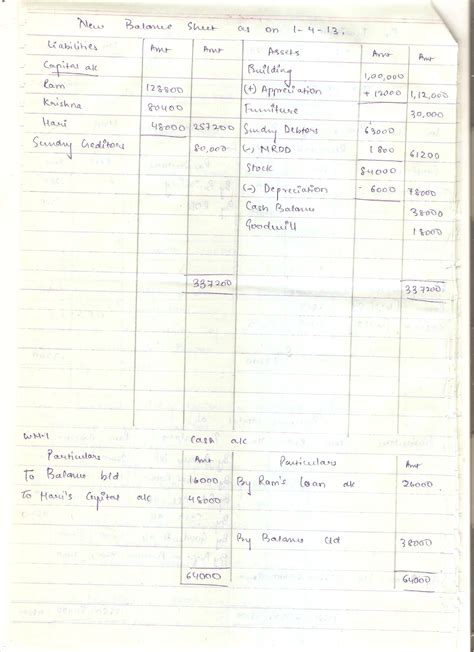 New Balance Sheet as on 1-4-13.
Liabilities Amt Amt Assets Amt Amt
Capital a/c Building 1,00,000
Ram 128800 (+) Appreciation + 12000 1,12,000
Krishna 80400 Furniture 30,000
Hari 48000 257200 Sundry Debtors 63000
Sundry Creditors 80,000 (-) NRDD 1800 61200
Stock 84000
(-) Depreciation - 6000 78000
Cash Balance 38000
Goodwill 18000
337200 337200
WN-1 Cash a/c
Particulars Amt Particulars Amt
To Balance b/d 16000 By Ram's loan a/c 26000
To Hari's Capital a/c 48000
By Balance c/d 38000
64000 64000